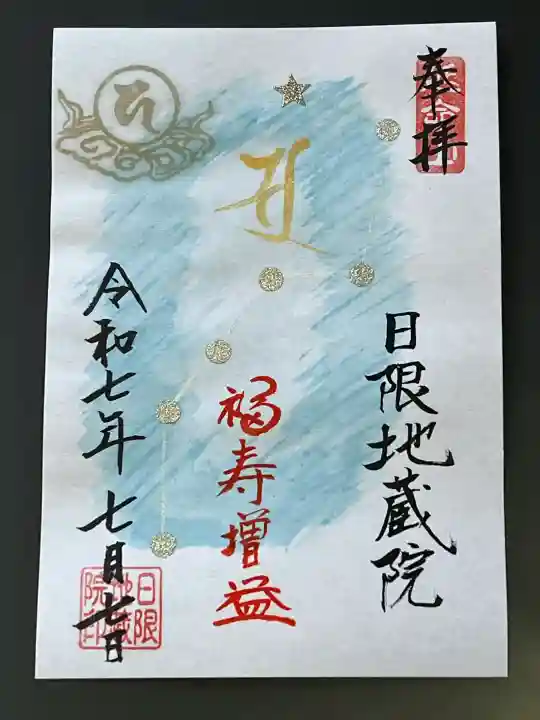 奉拝
日限地蔵院
福寿増益
令和七年 七月七日
日限
地蔵
院印